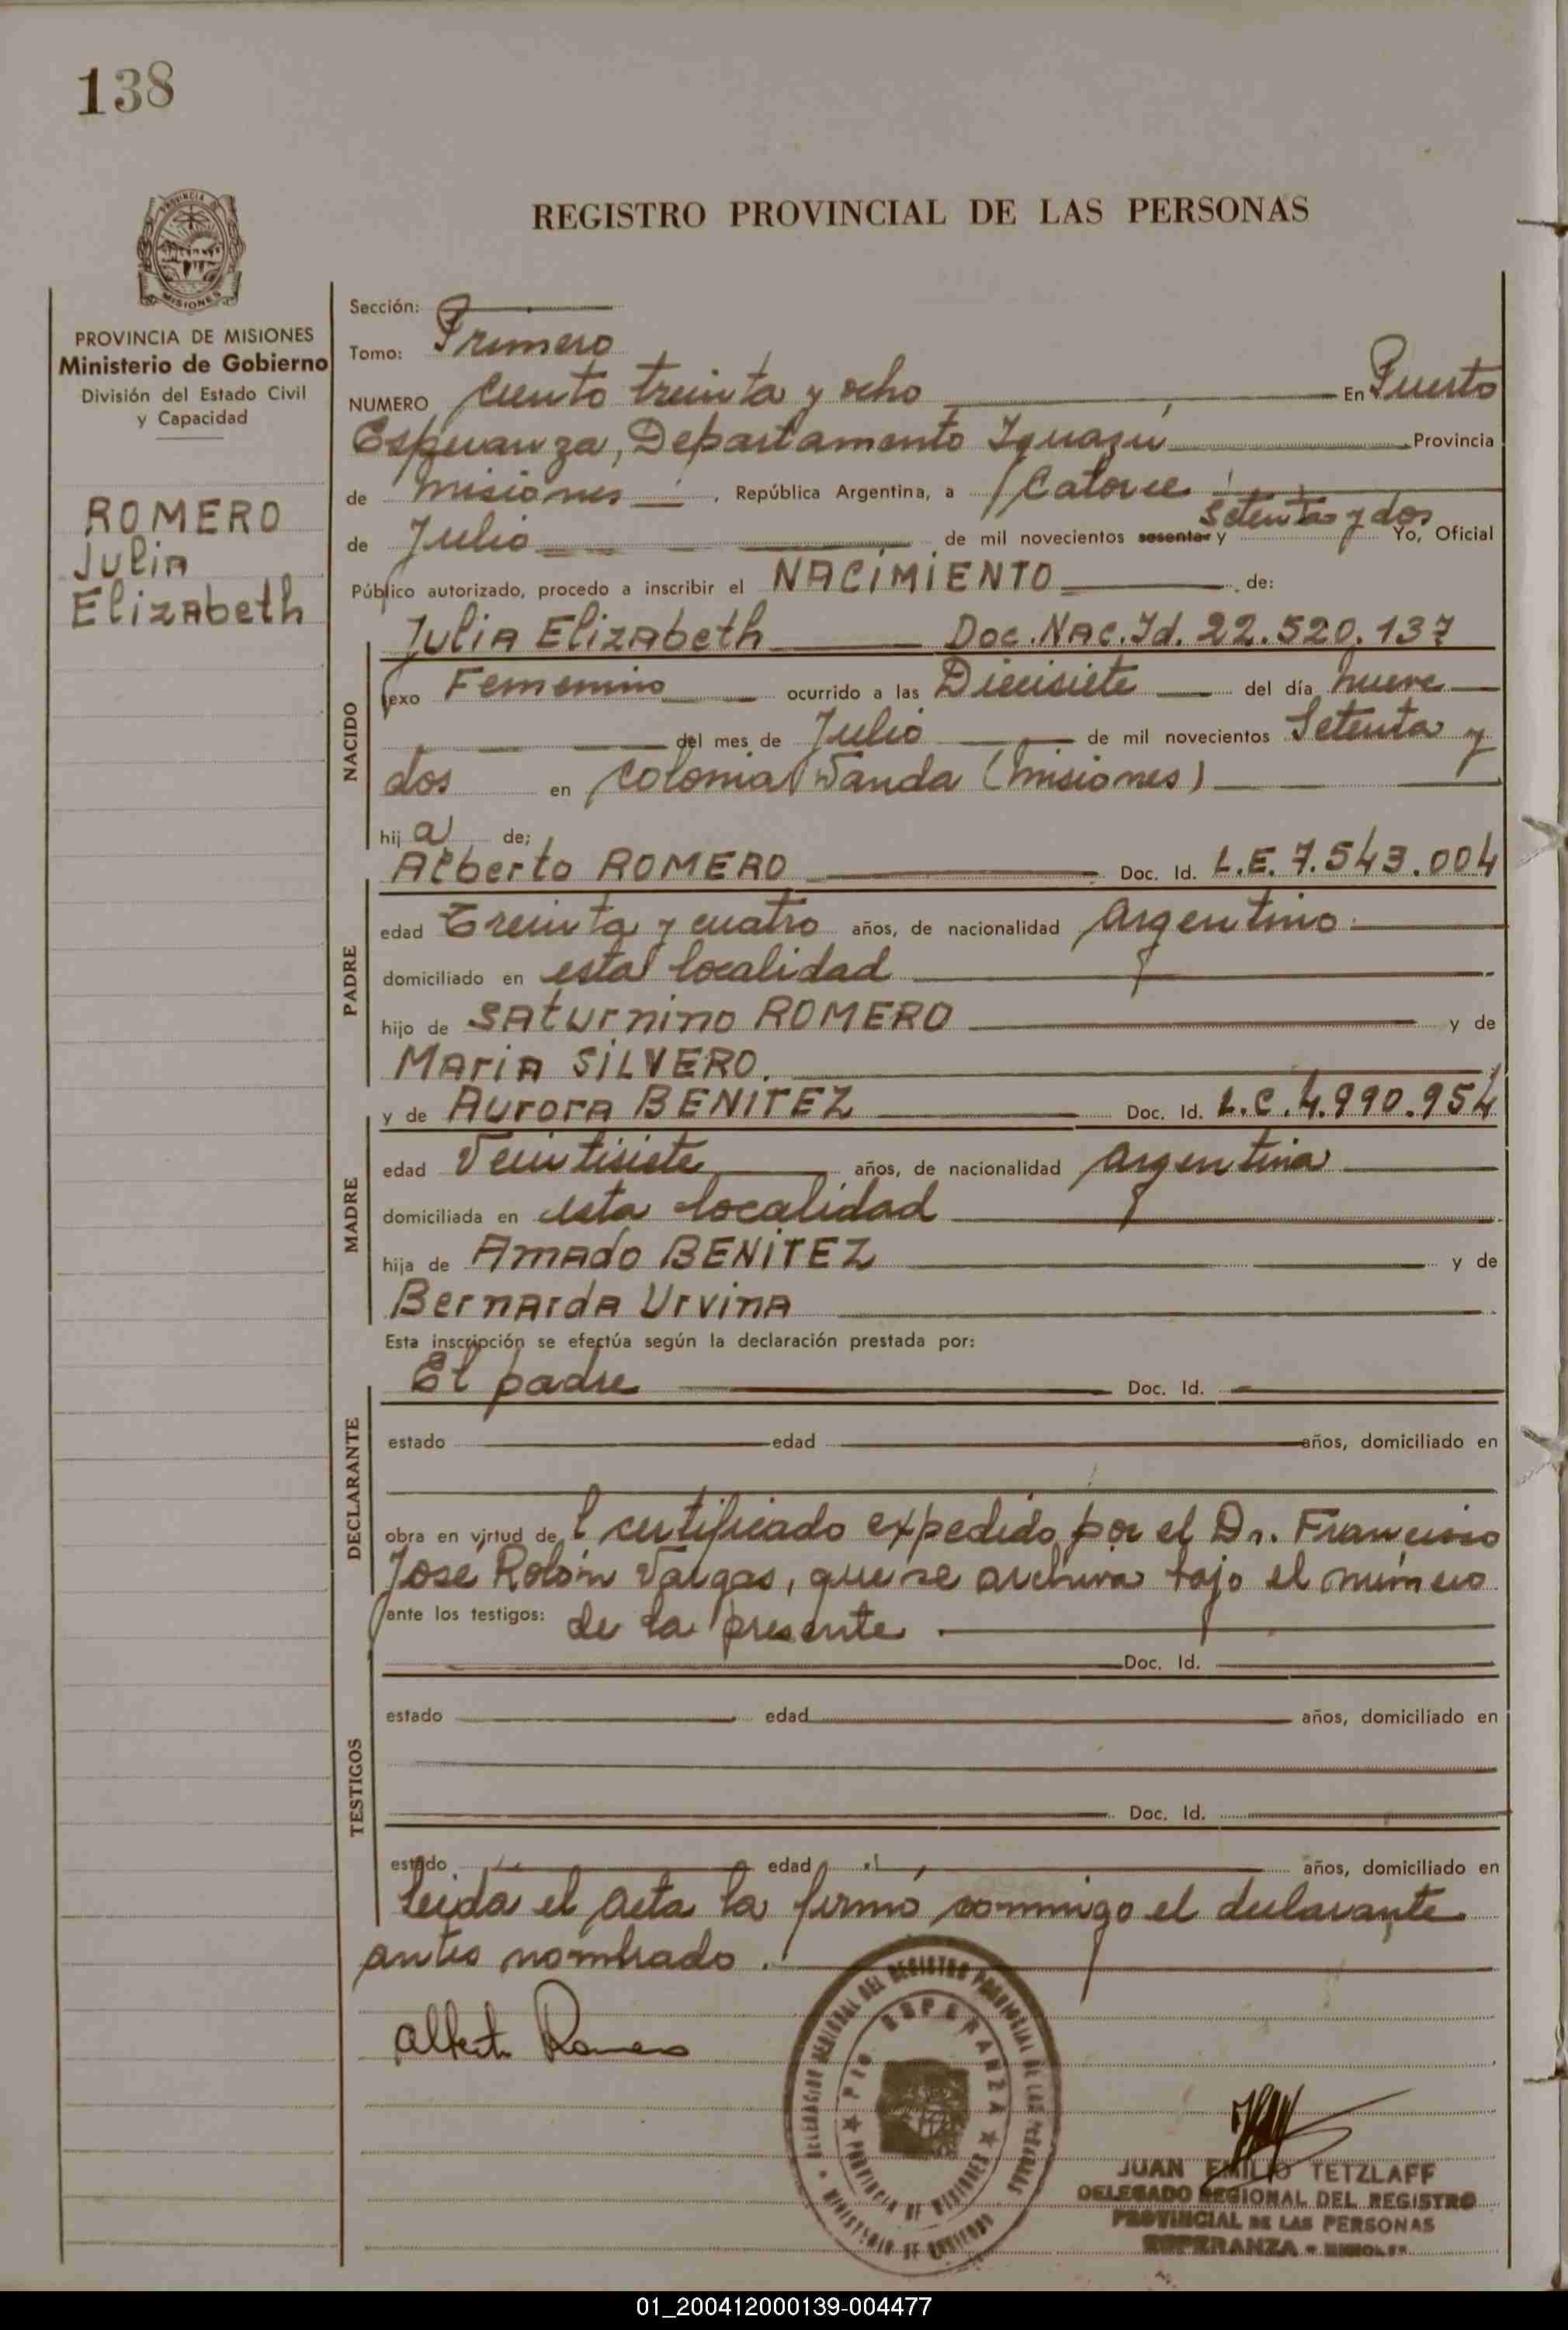 138
REGISTRO PROVINCIAL DE LAS PERSONAS
PROVINCIA DE
MISIONES
PROVINCIA DE MISIONES
Ministerio de Gobierno
División del Estado Civil
y Capacidad
ROMERO
Julia
Elizabeth
Sección:
Tomo: Primero
NUMERO Ciento treinta y ocho En Puerto
Esperanza, Departamento Iguazú Provincia
de Misiones, República Argentina, a Catorce
de Julio de mil novecientos sesenta y Setenta y dos Yo, Oficial
Público autorizado, procedo a inscribir el NACIMIENTO de:
Julia Elizabeth Doc. Nac. Id. 22.520.137
NACIDO
sexo Femenino ocurrido a las Diecisiete del día nueve
del mes de Julio de mil novecientos Setenta y
dos en Colonia Wanda (Misiones)
hij a de;
Alberto ROMERO Doc. Id. L.E. 7.543.004
PADRE
edad Treinta y cuatro años, de nacionalidad argentino
domiciliado en esta localidad
hijo de Saturnino ROMERO y de
Maria SILVERO.
y de Aurora BENITEZ Doc. Id. L.C. 4.990.954
MADRE
edad Veintisiete años, de nacionalidad argentina
domiciliada en esta localidad
hija de Amado BENITEZ y de
Bernarda Urvina
Esta inscripción se efectúa según la declaración prestada por:
El padre Doc. Id.
DECLARANTE
estado edad años, domiciliado en
obra en virtud de l certificado expedido por el Dr. Francisco
José Rolón Vargas, que se archiva bajo el número
ante los testigos: de la presente.
Doc. Id.
TESTIGOS
estado edad años, domiciliado en
Doc. Id.
estado edad años, domiciliado en
Leida el acta la firmó conmigo el declarante
antes nombrado.
Alberto Romero
DELEGACION REGIONAL DEL REGISTRO PROVINCIAL DE LAS PERSONAS
PTO ESPERANZA
PROVINCIA DE MISIONES
MINISTERIO DE GOBIERNO
JUAN EMILIO TETZLAFF
DELEGADO REGIONAL DEL REGISTRO
PROVINCIAL DE LAS PERSONAS
ESPERANZA - MISIONES
01_200412000139-004477